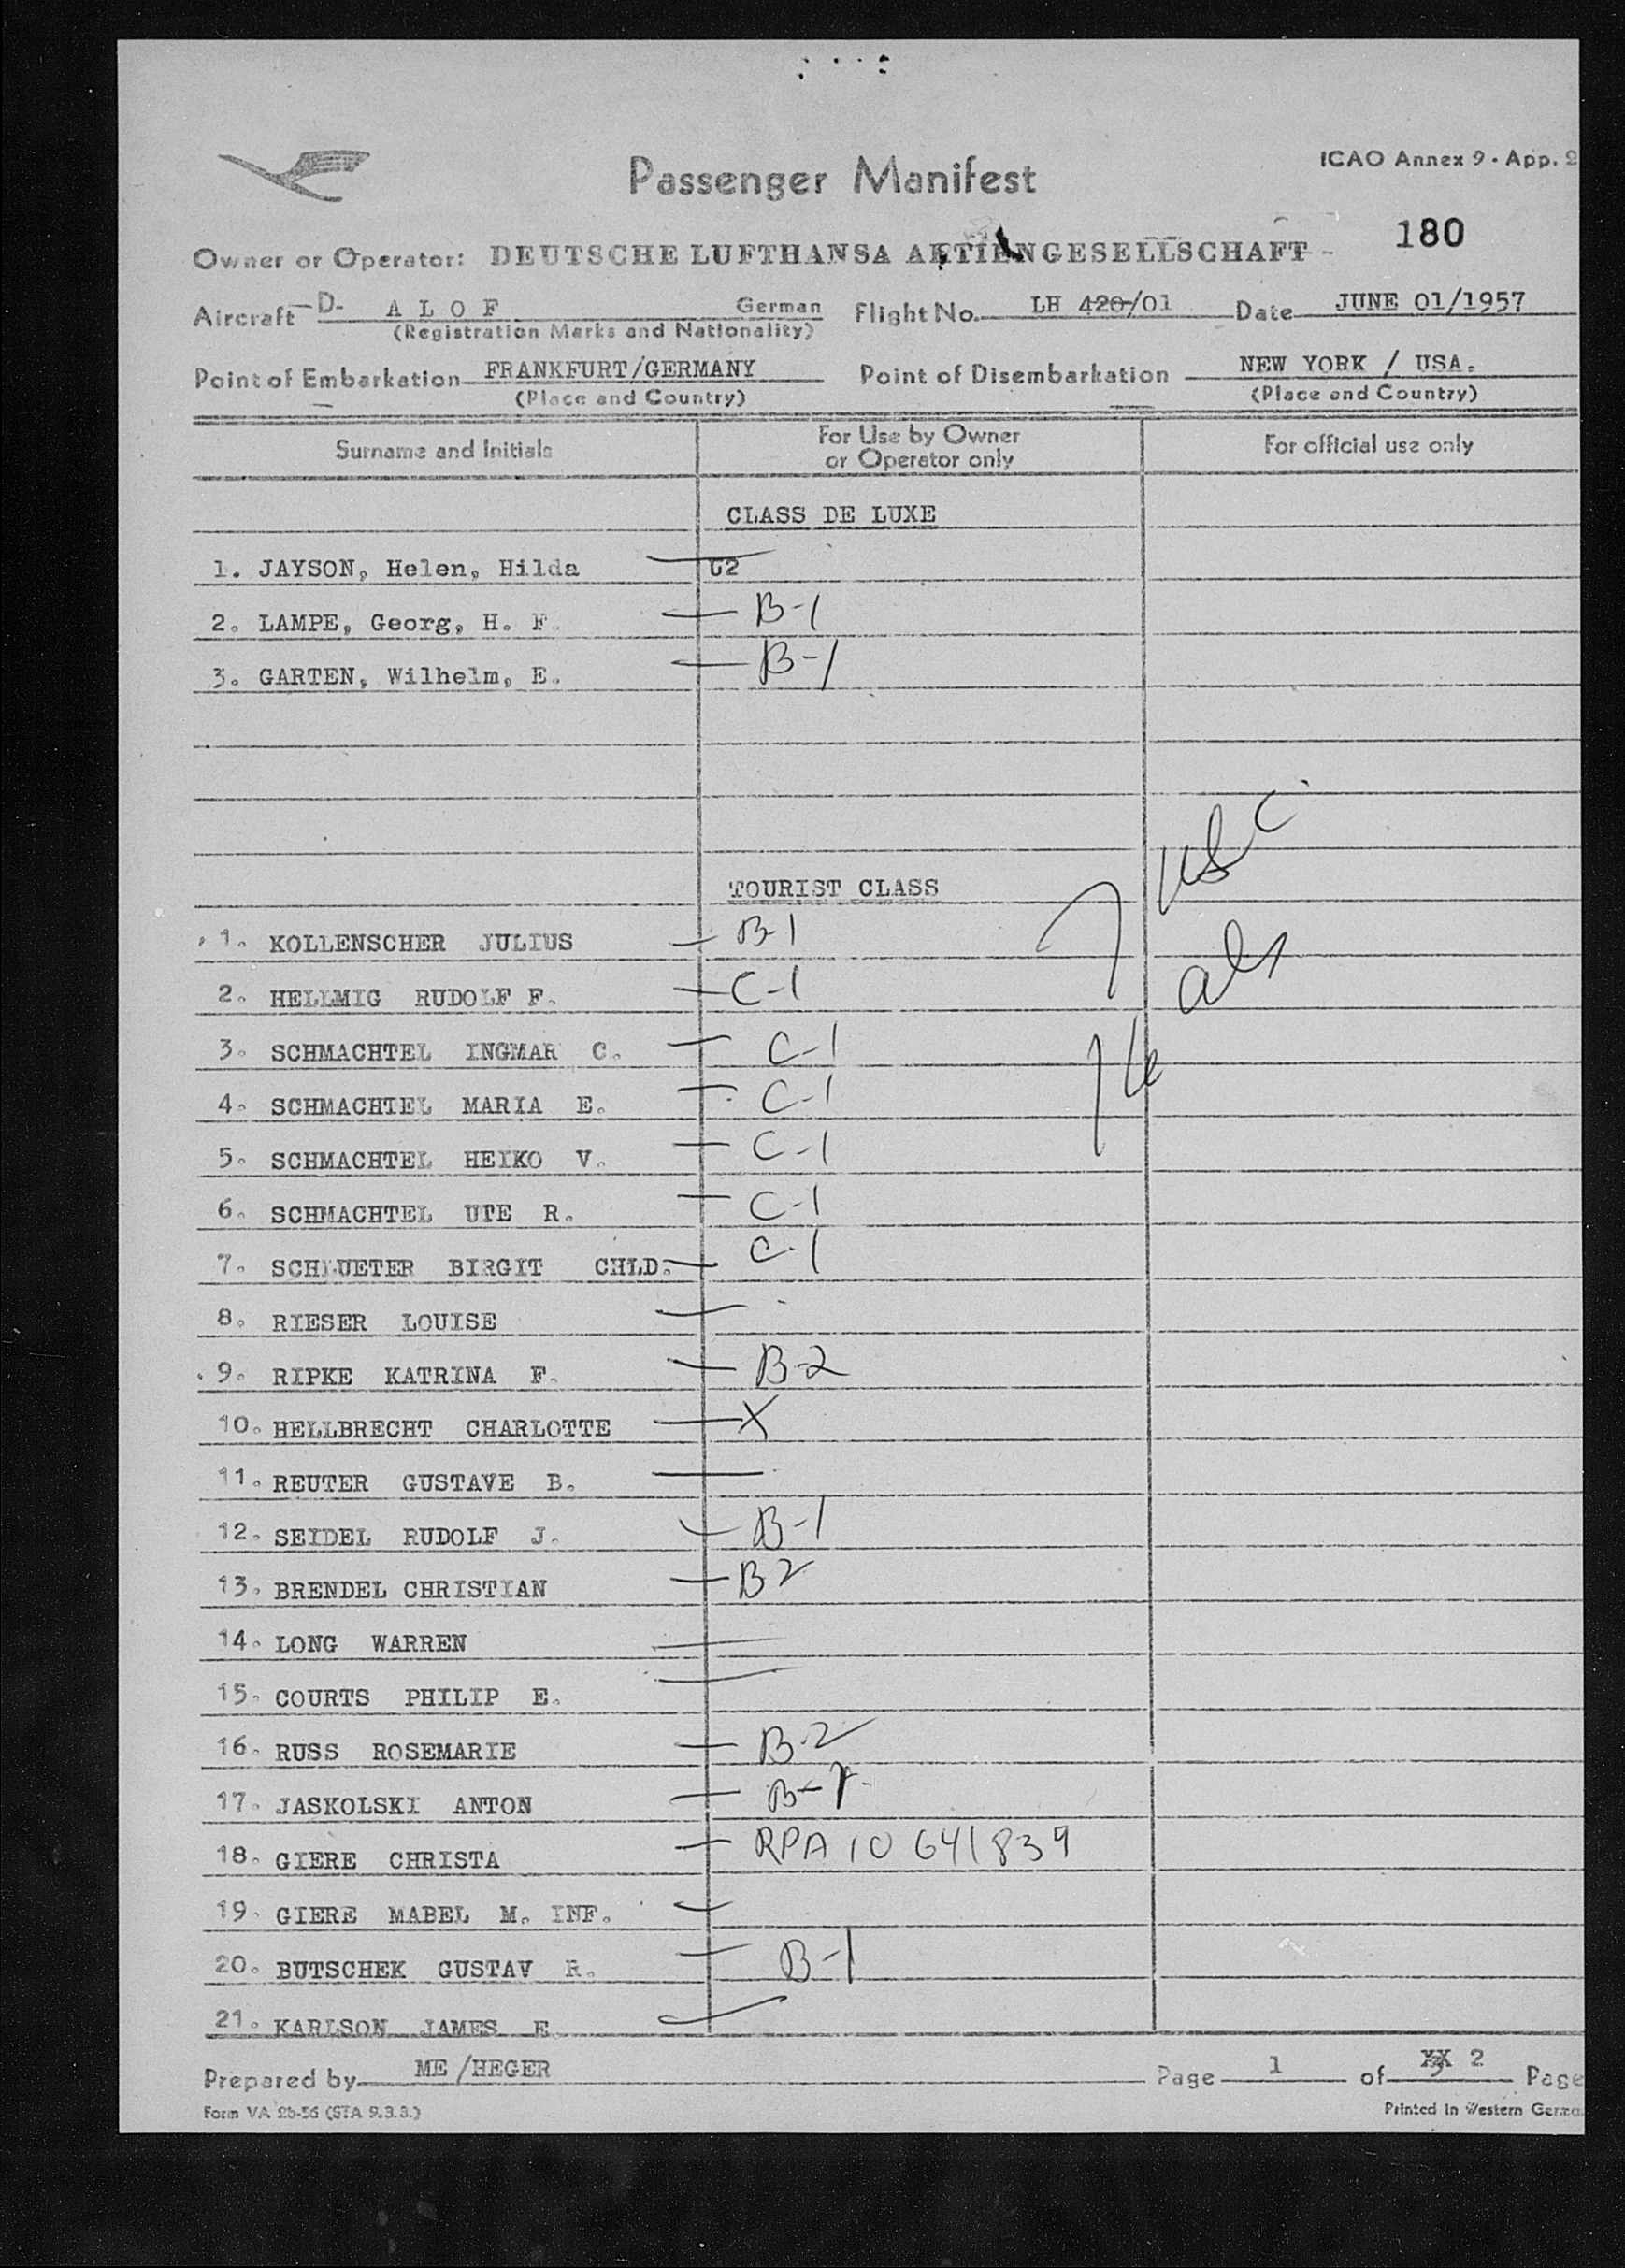 ICAO Annex 9 · App. 2
Passenger Manifest
180
Owner or Operator: DEUTSCHE LUFTHANSA AKTIENGESELLSCHAFT -
Aircraft D- A L O F German Flight No. LH 420/01 Date JUNE 01/1957
(Registration Marks and Nationality)
Point of Embarkation FRANKFURT/GERMANY Point of Disembarkation NEW YORK / USA.
(Place and Country) (Place and Country)
Surname and Initials For Use by Owner or Operator only For official use only
CLASS DE LUXE
1. JAYSON, Helen, Hilda G2
2. LAMPE, Georg, H. F. B-1
3. GARTEN, Wilhelm, E. B-1
usc
TOURIST CLASS 7
1. KOLLENSCHER JULIUS B-1
als
2. HELLMIG RUDOLF F. C-1
3. SCHMACHTEL INGMAR C. C-1
16
4. SCHMACHTEL MARIA E. C-1
5. SCHMACHTEL HEIKO V. C-1
6. SCHMACHTEL UTE R. C-1
7. SCHLUETER BIRGIT CHLD. C-1
8. RIESER LOUISE
9. RIPKE KATRINA F. B-2
10. HELLBRECHT CHARLOTTE X
11. REUTER GUSTAVE B.
12. SEIDEL RUDOLF J. B-1
13. BRENDEL CHRISTIAN B2
14. LONG WARREN
15. COURTS PHILIP E.
16. RUSS ROSEMARIE B-2
17. JASKOLSKI ANTON B-
18. GIERE CHRISTA RPA 10 641839
19. GIERE MABEL M. INF.
20. BUTSCHEK GUSTAV R. B-1
21. KARLSON JAMES E
Prepared by ME/HEGER Page 1 of XX 2 Page
Form VA 2b-56 (STA 9.3.3.) Printed in Western Germa